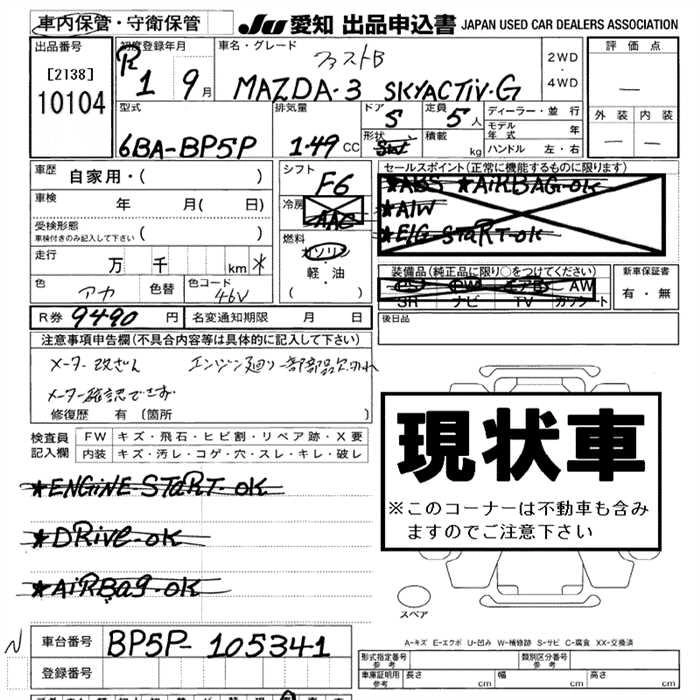 車内保管・守衛保管
JU 愛知 出品申込書 JAPAN USED CAR DEALERS ASSOCIATION
出品番号
[2138]
10104
初度登録年月
R 1 9月
車名・グレード
ファストB
MAZDA-3 SKYACTiV-G
2WD
・
4WD
評価点
—
外装 内装
— —
型式
6BA-BP5P
排気量
1.49 CC
ドア
5
形状
定員
5人
積載
kg
ディーラー・並行
モデル年式 年
ハンドル 左・右
車歴
自家用・( )
車検
年 月( 日)
受検形態
車検付きのみ記入して下さい ( )
走行
万 千 km *
色
アカ
色替
色コード
46V
シフト
F6
冷房
AAC
燃料
ガソリン
軽・油
( )
セールスポイント(正常に機能するものに限ります)
*ABS *AiRBAG-OK
*A/W
*E/G-START-OK
装備品(純正品に限り○をつけてください)
PS PW エアB AW
SR ナビ TV カッケート
新車保証書
有・無
R券 9490 円
名変通知期限 月 日
後日品
注意事項申告欄(不具合内容等は具体的に記入して下さい)
メーター改ざん エンジン廻り一部部品欠の他
メーター確認できず
修復歴 有(箇所 )
検査員記入欄
FW キズ・飛石・ヒビ割・リペア跡・X要
内装 キズ・汚レ・コゲ・穴・スレ・キレ・破レ
*ENGiNE-START-OK
*DRive-OK
*AiRBag-OK
現状車
※このコーナーは不動車も含み
ますのでご注意下さい
スペア
A-キズ E-エクボ U-凹み W-補修跡 S-サビ C-腐食 XX-交換済
N
車台番号
BP5P-105341
登録番号
形式指定番号
参考
類別区分番号
参考
車庫証明用
参考
長さ cm
幅 cm
高さ cm